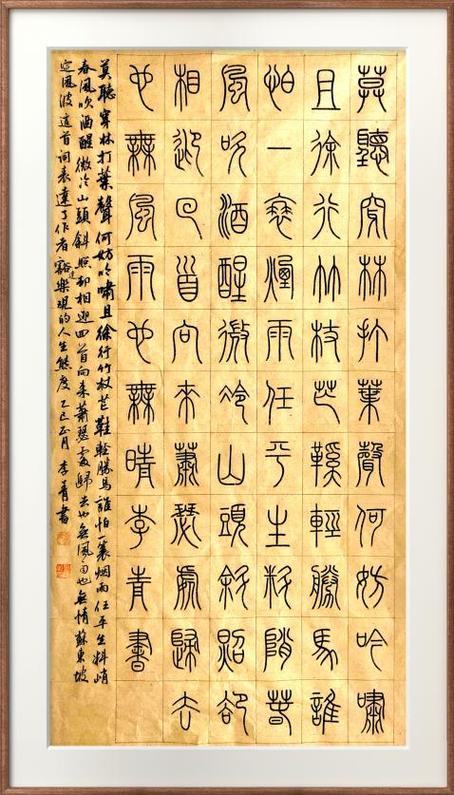 莫聽穿林打葉聲何妨吟嘯
且徐行竹杖芒鞵輕勝馬誰
怕一蓑煙雨任平生料峭春
風吹酒醒微冷山頭斜照卻
相迎回首向來蕭瑟處歸去
也無風雨也無晴李青書
莫聽穿林打葉聲何妨吟嘯且徐行竹杖芒鞋輕勝馬誰怕一蓑烟雨任平生料峭
春風吹酒醒微冷山頭斜照却相迎回首向来蕭瑟處歸去也無風雨也無情蘇東坡
定風波這首詞表達了作者豁達樂觀的人生態度乙巳正月李青書